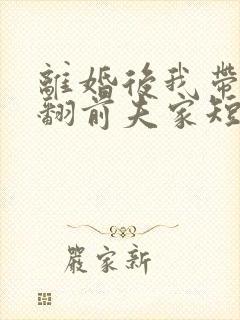 離婚後我帶
翻前夫家短
嚴家新